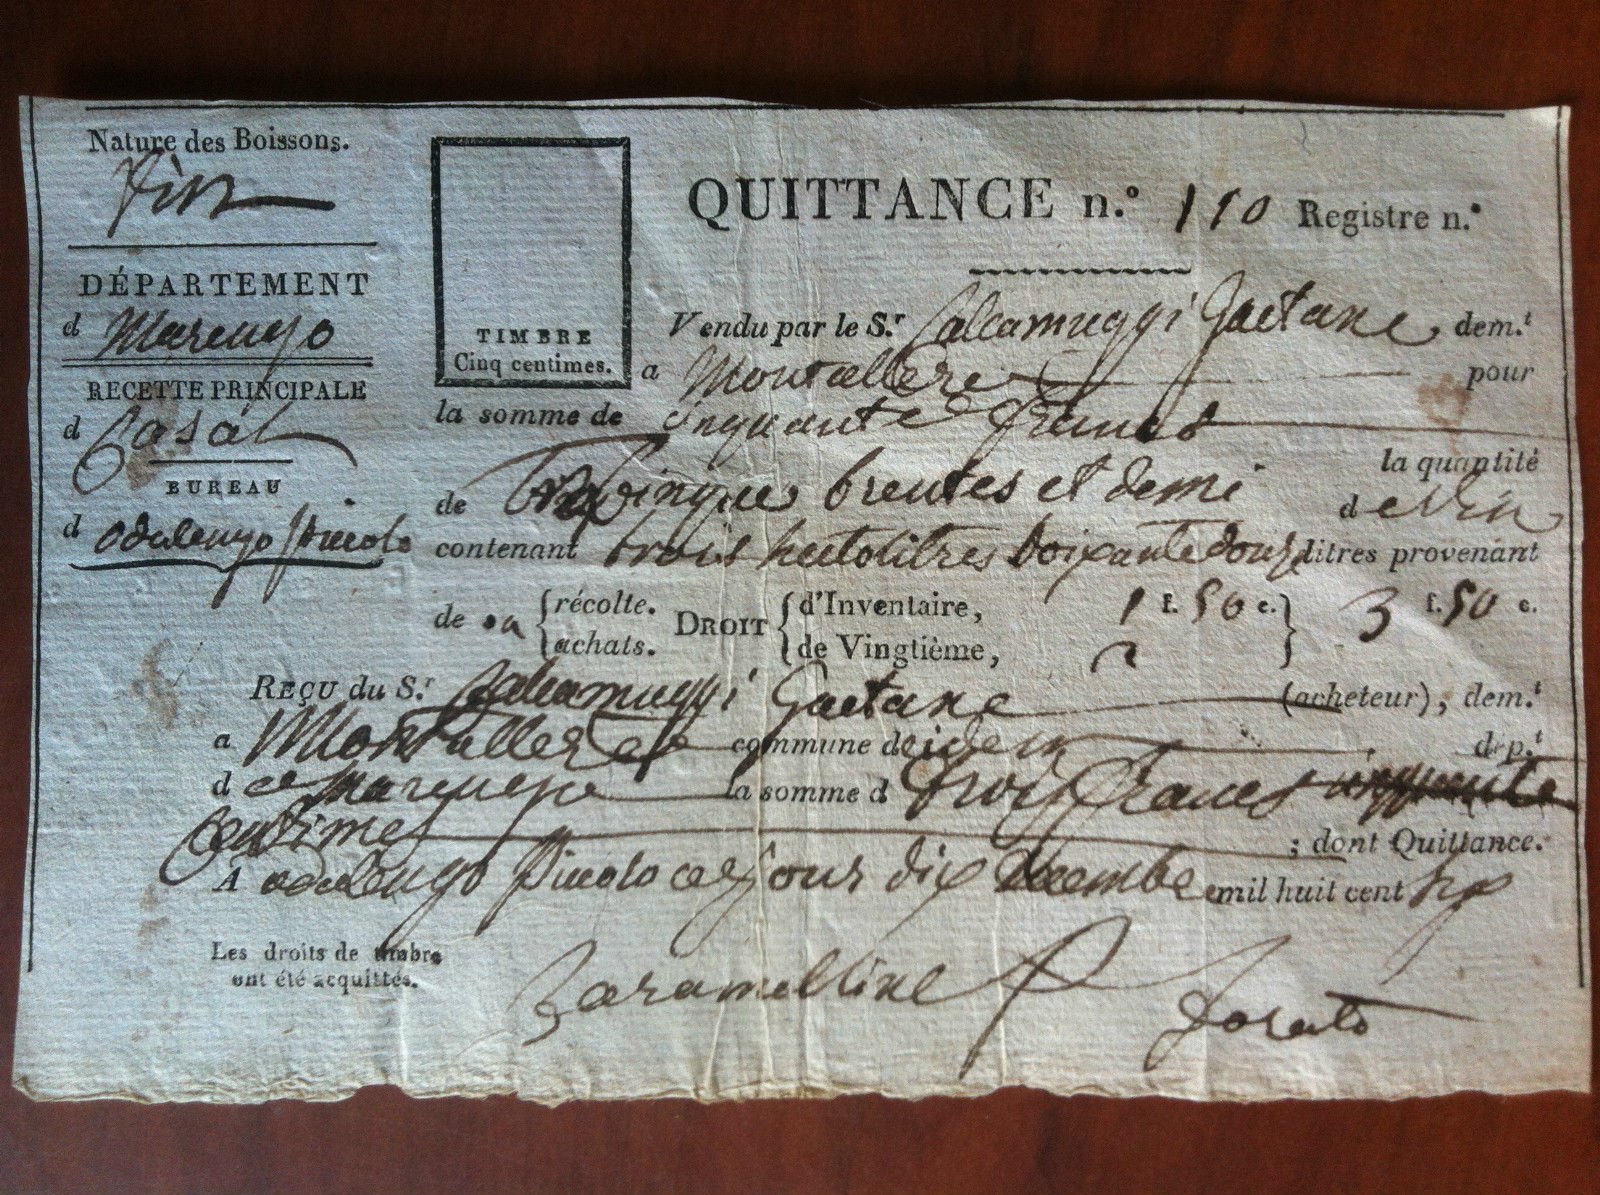 Nature des Boissons.
Vin
DÉPARTEMENT
d Marengo
RECETTE PRINCIPALE
d Casal
BUREAU
d odalengo Piccolo
TIMBRE
Cinq centimes.
QUITTANCE n.° 110 Registre n.°
Vendu par le S.r Calcamuggi Gaetane dem.t
a Montallere pour
la somme de cinquante francs
la quantité
de brentes et demi d e Vin
contenant trois hectolitres soixante douze litres provenant
de sa { récolte. achats. DROIT { d'Inventaire, 1 f. 50 c. } 3 f. 50 c.
de Vingtième, 2
REÇU du S.r Calcamuggi Gaetane (acheteur), dem.t
a Montallere commune de idem dép.t
d e Marengo la somme d trois francs cinquante
Centimes ; dont Quittance.
A odalengo Piccolo ce jour dix Décembre mil huit cent six
Les droits de timbre
ont été acquittés.